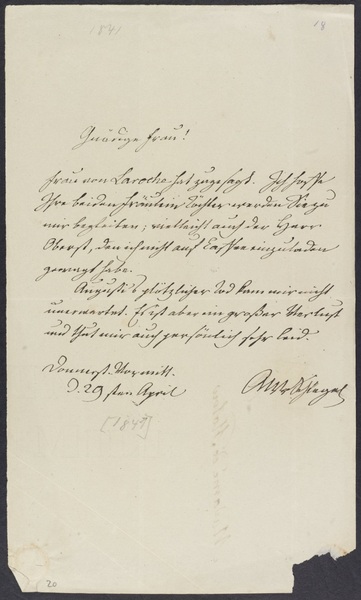 1841
18
Gnädige Frau!
Frau von Laroche hat zugesagt. Ich hoffe
Ihre beiden Fräulein Töchter werden Sie zu
mir begleiten; vielleicht auch der Herr
Oberst, den ich nicht auf Kaffee einzuladen
gewagt habe.
Augusti's plötzlicher Tod kam mir nicht
unerwartet. Es ist aber ein großer Verlust
und thut mir auch persönlich sehr leid.
Donnerst. Vormitt.
d. 29sten April
AWvSchlegel
[1841]
20